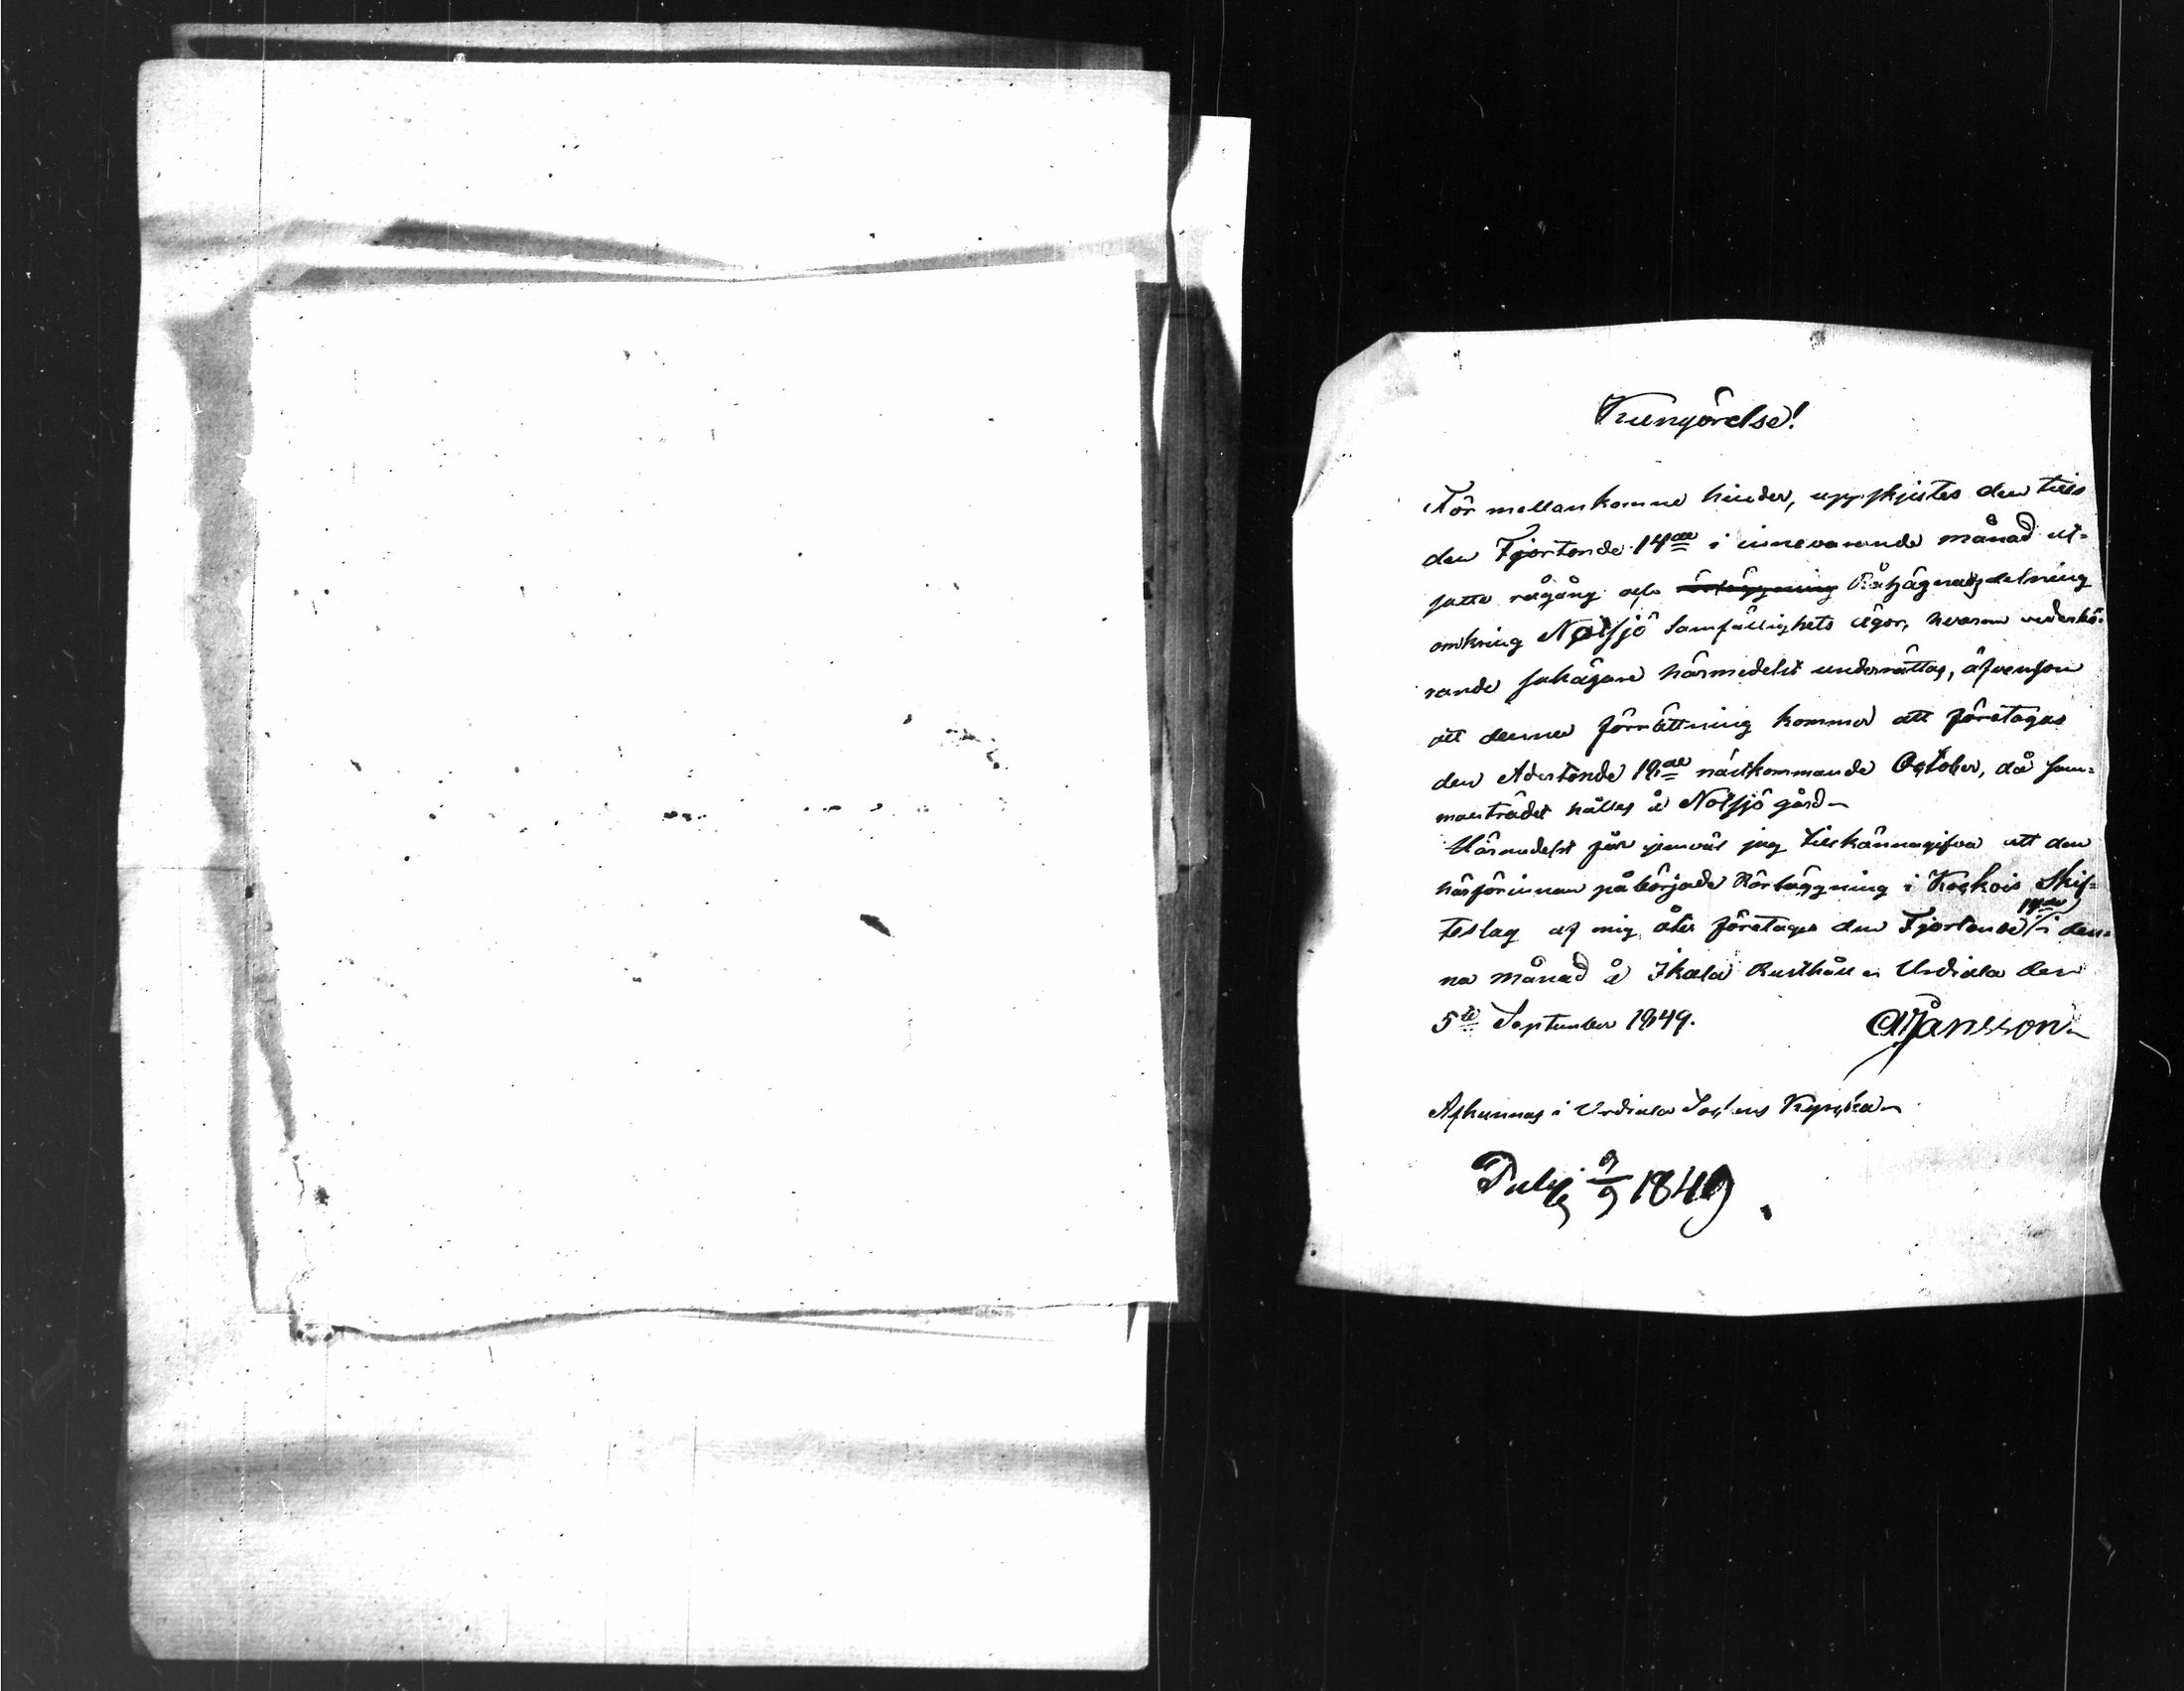 Kungörelse!
För mellankomne hinder, uppskjutes den till
den Fjortonde 14de i innevarande månad ut-
satta rågång och Råhägnadsdelning
omkring Notsjö Samfällighets ägor, hvarom vederbö-
rande sakägare härmedelst underrättas, äfvensom
att denna förrättning kommer att företagas
den Adertonde 18de nästkommande October, då sam-
manträdet hålles å Notsjö gård
Härmedelst får jemväl jag tillkännagifva att den
härförinnan påbörjade Rörläggning i Koskois Skif-
teslag af mig åter företages den Fjortonde 14de i den-
na månad å Ikala Rusthåll. Urdiala den
5te September 1849.
Jansson
Afkunnas i Urdiala Sockens Kyrcka
9/9 1849